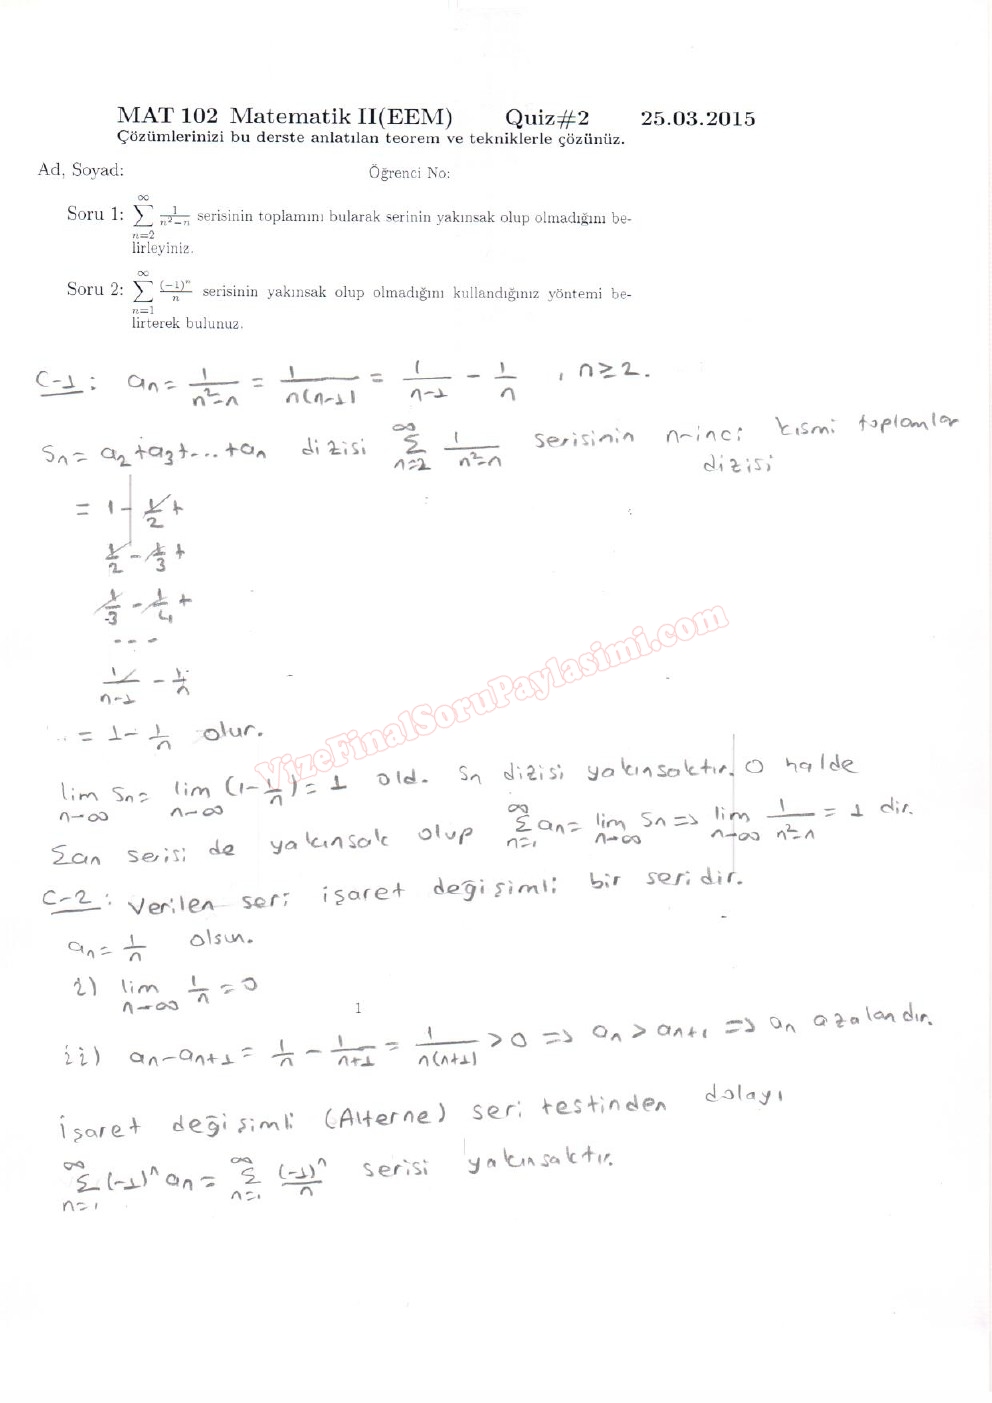 MAT 102 Matematik II(EEM) Quiz#2 25.03.2015
Çözümlerinizi bu derste anlatılan teorem ve tekniklerle çözünüz.
Ad, Soyad: Öğrenci No:
Soru 1: ∑_{n=2}^{∞} 1/(n²−n) serisinin toplamını bularak serinin yakınsak olup olmadığını be-
lirleyiniz.
Soru 2: ∑_{n=1}^{∞} (−1)ⁿ/n serisinin yakınsak olup olmadığını kullandığınız yöntemi be-
lirterek bulunuz.
C-1: aₙ = 1/(n²−n) = 1/(n(n−1)) = 1/(n−1) − 1/n , n≥2.
Sₙ = a₂+a₃+...+aₙ dizisi ∑_{n=2}^{∞} 1/(n²−n) serisinin n-inci kısmi toplamlar
dizisi
= 1 − 1/2 +
1/2 − 1/3 +
1/3 − 1/4 +
---
1/(n−1) − 1/n
= 1 − 1/n olur.
lim_{n→∞} Sₙ = lim_{n→∞} (1 − 1/n) = 1 old. Sn dizisi yakınsaktır. O halde
∑an serisi de yakınsak olup ∑_{n=1}^{∞} an = lim_{n→∞} Sn => lim_{n→∞} 1/(n²−n) = 1 dir.
C-2: Verilen seri işaret değişimli bir seridir.
aₙ = 1/n olsun.
i) lim_{n→∞} 1/n = 0
1
ii) aₙ − aₙ₊₁ = 1/n − 1/(n+1) = 1/(n(n+1)) > 0 => aₙ > aₙ₊₁ => aₙ azalandır.
işaret değişimli (Alterne) seri testinden dolayı
∑_{n=1}^{∞} (−1)ⁿ aₙ = ∑_{n=1}^{∞} (−1)ⁿ/n serisi yakınsaktır.
VizeFinalSoruPaylasimi.com